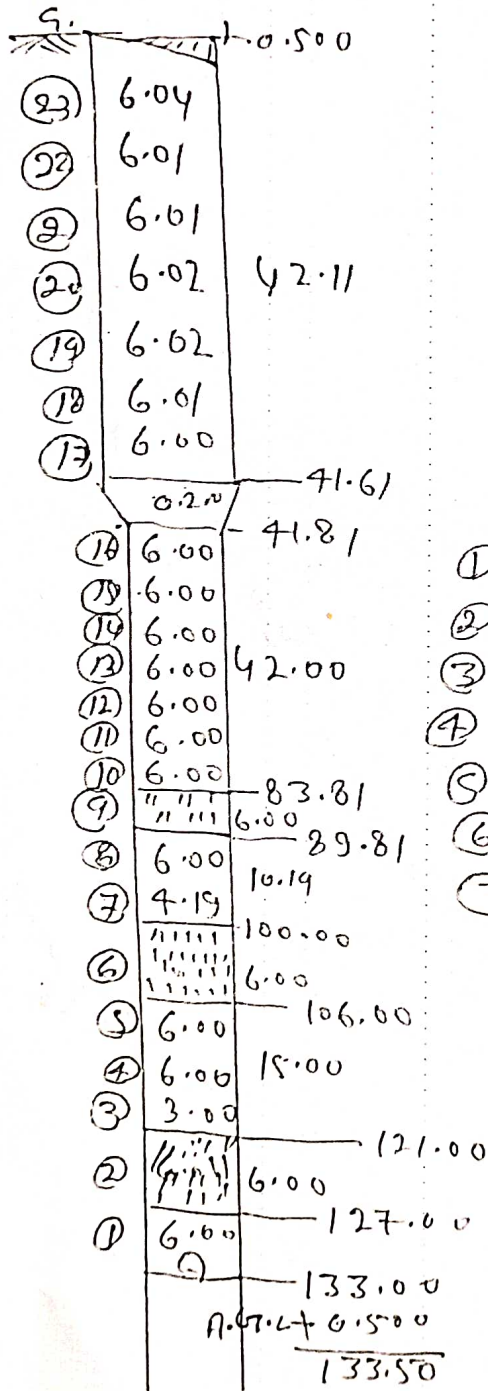 G. 0.500
23 6.04
22 6.01
2 6.01
20 6.02 42.11
19 6.02
18 6.01
17 6.00
41.61
0.20
41.81
16 6.00
15 6.00
14 6.00
13 6.00 42.00
12 6.00
11 6.00
10 6.00
83.81
9 6.00
89.81
8 6.00 10.19
7 4.19
100.00
6 6.00
106.00
5 6.00
4 6.00 15.00
3 3.00
121.00
2 6.00
127.00
1 6.00
133.00
A.G.L+ 0.500
133.50
1
2
3
4
5
6